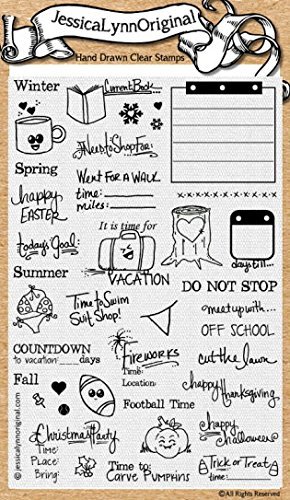 JessicaLynnOriginal
Hand Drawn Clear Stamps
Winter
Current Book
#NeedtoShopFor:
Spring
Went For a Walk
time:
miles:
happy
EASTER
It is time for
today's Goal:
VACATION
days till...
Summer
DO NOT STOP
Time to Swim
Suit Shop!
meet up with...
OFF SCHOOL
COUNTDOWN
to vacation: days
Fireworks
Time:
Location:
cut the lawn
Fall
happy
Thanksgiving
Football Time
Christmas Party
Time:
Place:
Bring:
happy
Halloween
Time to:
Carve Pumpkins
Trick or Treat
time:
© jessicalynnoriginal.com
©All Rights Reserved